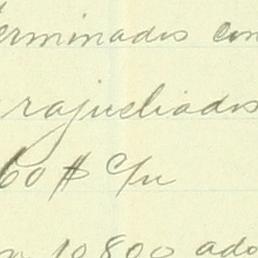 erminados con
rajueliados
60 $ c/u
a 10,800 ado